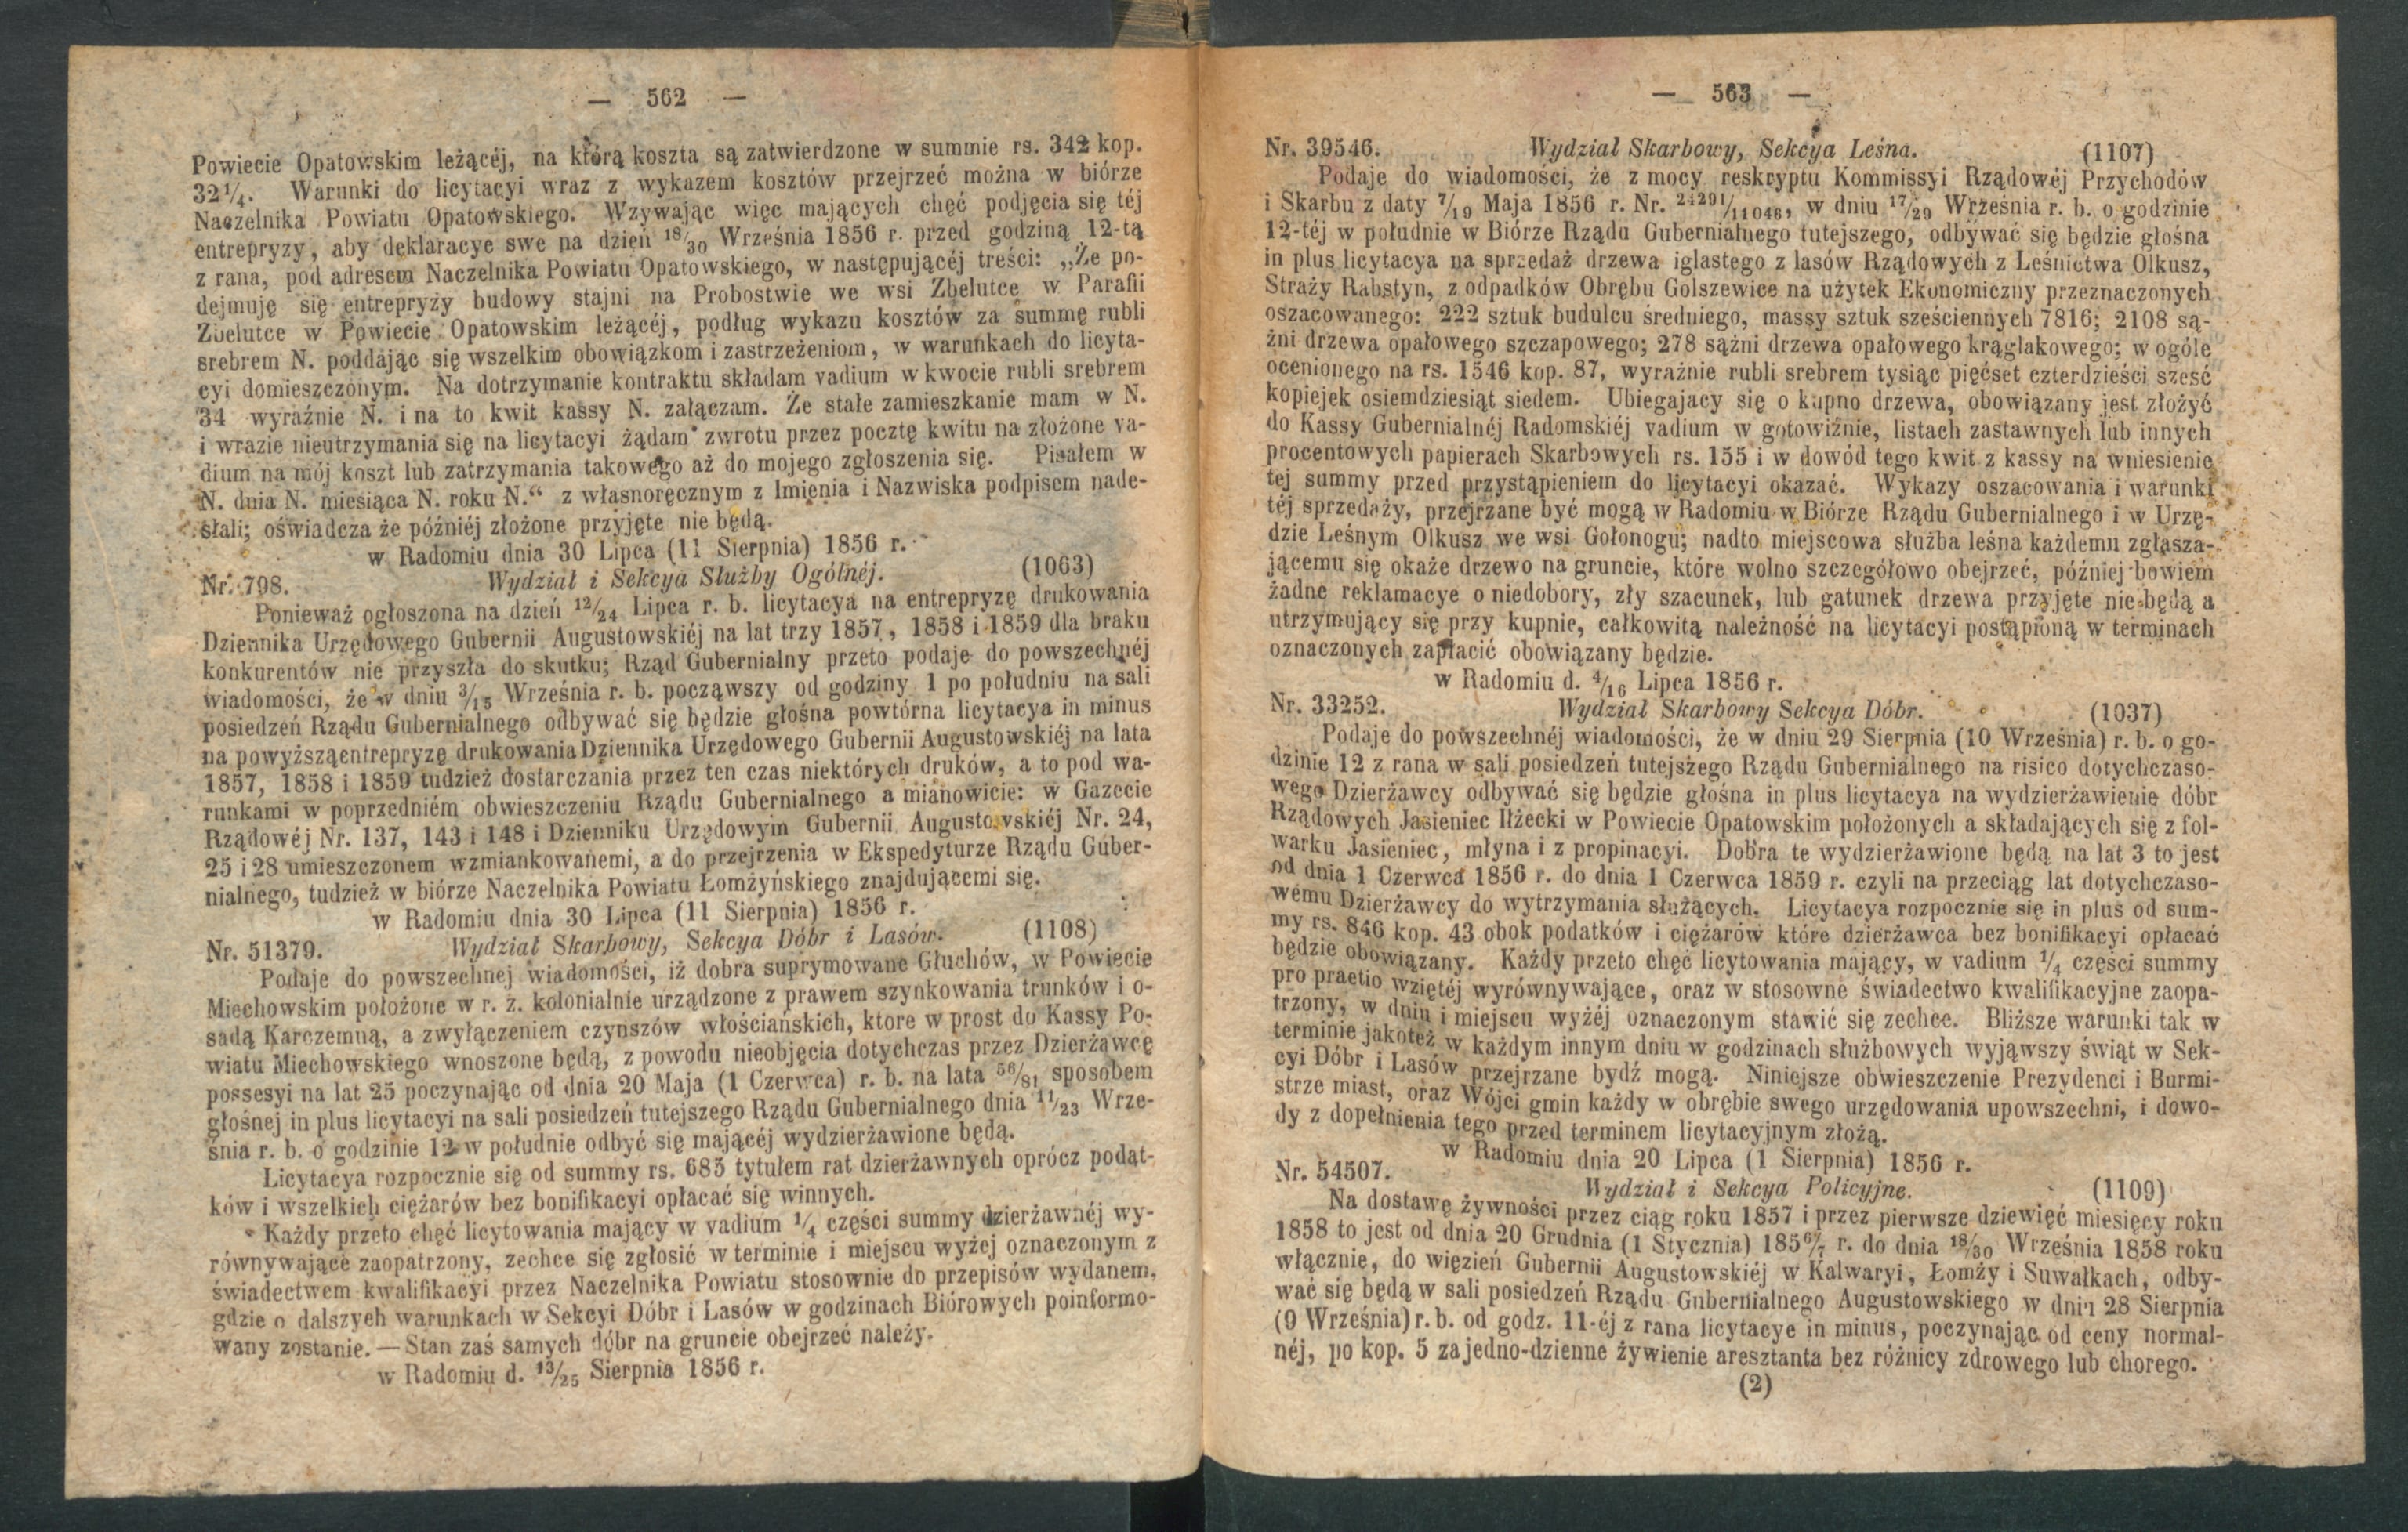 — 562 —
Powiecie Opatowskim leżącéj, na którą koszta są zatwierdzone w summie rs. 342 kop.
32¼. Warunki do licytacyi wraz z wykazem kosztów przejrzeć można w biórze
Naczelnika Powiatu Opatowskiego. Wzywając więc mających chęć podjęcia się téj
entrepryzy, aby deklaracye swe na dzień 18/30 Września 1856 r. przed godziną 12-tą
z rana, pod adresem Naczelnika Powiatu Opatowskiego, w następującéj treści: „Że po-
dejmuję się entrepryzy budowy stajni na Probostwie we wsi Zbelutce w Parafii
Zbelutce w Powiecie Opatowskim leżącéj, podług wykazu kosztów za summę rubli
srebrem N. poddając się wszelkim obowiązkom i zastrzeżeniom, w warunkach do licyta-
cyi domieszczonym. Na dotrzymanie kontraktu składam vadium w kwocie rubli srebrem
34 wyraźnie N. i na to kwit kassy N. załączam. Że stałe zamieszkanie mam w N.
i wrazie nieutrzymania się na licytacyi żądam zwrotu przez pocztę kwitu na złożone va-
dium na mój koszt lub zatrzymania takowego aż do mojego zgłoszenia się. Pisałem w
N. dnia N. miesiąca N. roku N.“ z własnoręcznym z Imienia i Nazwiska podpisem nade-
słali; oświadcza że późniéj złożone przyjęte nie będą.
w Radomiu dnia 30 Lipca (11 Sierpnia) 1856 r.
Nr. 798. Wydział i Sekcya Służby Ogólnéj. (1063)
Ponieważ ogłoszona na dzień 12/24 Lipca r. b. licytacya na entrepryzę drukowania
Dziennika Urzędowego Gubernii Augustowskiéj na lat trzy 1857, 1858 i 1859 dla braku
konkurentów nie przyszła do skutku; Rząd Gubernialny przeto podaje do powszechnéj
wiadomości, że w dniu 3/15 Września r. b. począwszy od godziny 1 po południu na sali
posiedzeń Rządu Gubernialnego odbywać się będzie głośna powtórna licytacya in minus
na powyższą entrepryzę drukowania Dziennika Urzędowego Gubernii Augustowskiéj na lata
1857, 1858 i 1859 tudzież dostarczania przez ten czas niektórych druków, a to pod wa-
runkami w poprzedniém obwieszczeniu Rządu Gubernialnego a mianowicie: w Gazecie
Rządowéj Nr. 137, 143 i 148 i Dzienniku Urzędowym Gubernii Augustowskiéj Nr. 24,
25 i 28 umieszczonem wzmiankowanemi, a do przejrzenia w Ekspedyturze Rządu Guber-
nialnego, tudzież w biórze Naczelnika Powiatu Łomżyńskiego znajdującemi się.
w Radomiu dnia 30 Lipca (11 Sierpnia) 1856 r.
Nr. 51379. Wydział Skarbowy, Sekcya Dóbr i Lasów. (1108)
Podaje do powszechnej wiadomości, iż dobra suprymowane Głuchów, w Powiecie
Miechowskim położone w r. z. kolonialnie urządzone z prawem szynkowania trunków i o-
sadą Karczemną, a zwyłączeniem czynszów włościańskich, ktore w prost do Kassy Po-
wiatu Miechowskiego wnoszone będą, z powodu nieobjęcia dotychczas przez Dzierżawcę
possesyi na lat 25 poczynając od dnia 20 Maja (1 Czerwca) r. b. na lata 56/81 sposobem
głośnej in plus licytacyi na sali posiedzeń tutejszego Rządu Gubernialnego dnia 11/23 Wrze-
śnia r. b. o godzinie 12 w południe odbyć się mającéj wydzierżawione będą.
Licytacya rozpocznie się od summy rs. 685 tytułem rat dzierżawnych oprócz podat-
ków i wszelkich ciężarów bez bonifikacyi opłacać się winnych.
Każdy przeto chęć licytowania mający w vadium ¼ części summy dzierżawnéj wy-
równywające zaopatrzony, zechce się zgłosić w terminie i miejscu wyżej oznaczonym z
świadectwem kwalifikacyi przez Naczelnika Powiatu stosownie do przepisów wydanem,
gdzie o dalszych warunkach w Sekcyi Dóbr i Lasów w godzinach Biórowych poinformo-
wany zostanie. — Stan zaś samych dóbr na gruncie obejrzeć należy.
w Radomiu d. 13/25 Sierpnia 1856 r.
— 563 —
Nr. 39546. Wydział Skarbowy, Sekcya Leśna. (1107)
Podaje do wiadomości, że z mocy reskryptu Kommissyi Rządowéj Przychodów
i Skarbu z daty 7/19 Maja 1856 r. Nr. 24291/11046, w dniu 17/29 Września r. b. o godzinie
12-téj w południe w Biórze Rządu Gubernialnego tutejszego, odbywać się będzie głośna
in plus licytacya na sprzedaż drzewa iglastego z lasów Rządowych z Leśnictwa Olkusz,
Straży Rabstyn, z odpadków Obrębu Golszewice na użytek Ekonomiczny przeznaczonych
oszacowanego: 222 sztuk budulcu średniego, massy sztuk sześciennych 7816; 2108 są-
żni drzewa opałowego szczapowego; 278 sążni drzewa opałowego krąglakowego; w ogóle
ocenionego na rs. 1546 kop. 87, wyraźnie rubli srebrem tysiąc pięćset czterdzieści sześć
kopiejek osiemdziesiąt siedem. Ubiegajacy się o kupno drzewa, obowiązany jest złożyć
do Kassy Gubernialnéj Radomskiéj vadium w gotowiźnie, listach zastawnych lub innych
procentowych papierach Skarbowych rs. 155 i w dowód tego kwit z kassy na wniesienie
tej summy przed przystąpieniem do licytacyi okazać. Wykazy oszacowania i warunki
téj sprzedaży, przejrzane być mogą w Radomiu w Biórze Rządu Gubernialnego i w Urzę-
dzie Leśnym Olkusz we wsi Gołonogu; nadto miejscowa służba leśna każdemu zgłasza-
jącemu się okaże drzewo na gruncie, które wolno szczegółowo obejrzeć, później bowiem
żadne reklamacye o niedobory, zły szacunek, lub gatunek drzewa przyjęte nie będą a
utrzymujący się przy kupnie, całkowitą należność na licytacyi postąpioną w terminach
oznaczonych zapłacić obowiązany będzie.
w Radomiu d. 4/16 Lipca 1856 r.
Nr. 33252. Wydział Skarbowy Sekcya Dóbr. (1037)
Podaje do powszechnéj wiadomości, że w dniu 29 Sierpnia (10 Września) r. b. o go-
dzinie 12 z rana w sali posiedzeń tutejszego Rządu Gubernialnego na risico dotychczaso-
wego Dzierżawcy odbywać się będzie głośna in plus licytacya na wydzierżawienie dóbr
Rządowych Jasieniec Iłżecki w Powiecie Opatowskim położonych a składających się z fol-
warku Jasieniec, młyna i z propinacyi. Dobra te wydzierżawione będą na lat 3 to jest
od dnia 1 Czerwca 1856 r. do dnia 1 Czerwca 1859 r. czyli na przeciąg lat dotychczaso-
wému Dzierżawcy do wytrzymania służących. Licytacya rozpocznie się in plus od sum-
my rs. 846 kop. 43 obok podatków i ciężarów które dzierżawca bez bonifikacyi opłacać
będzie obowiązany. Każdy przeto chęć licytowania mający, w vadium ¼ części summy
pro praetio wziętéj wyrównywające, oraz w stosowne świadectwo kwalifikacyjne zaopa-
trzony, w dniu i miejscu wyżéj oznaczonym stawić się zechce. Bliższe warunki tak w
terminie jakoteż w każdym innym dniu w godzinach służbowych wyjąwszy świąt w Sek-
cyi Dóbr i Lasów przejrzane bydź mogą. Niniejsze obwieszczenie Prezydenci i Burmi-
strze miast, oraz Wójci gmin każdy w obrębie swego urzędowania upowszechni, i dowo-
dy z dopełnienia tego przed terminem licytacyjnym złożą.
w Radomiu dnia 20 Lipca (1 Sierpnia) 1856 r.
Nr. 54507. Wydział i Sekcya Policyjne. (1109)
Na dostawę żywności przez ciąg roku 1857 i przez pierwsze dziewięć miesięcy roku
1858 to jest od dnia 20 Grudnia (1 Stycznia) 1856/7 r. do dnia 18/30 Września 1858 roku
włącznie, do więzień Gubernii Augustowskiéj w Kalwaryi, Łomży i Suwałkach, odby-
wać się będą w sali posiedzeń Rządu Gubernialnego Augustowskiego w dniu 28 Sierpnia
(9 Września) r. b. od godz. 11-éj z rana licytacye in minus, poczynając od ceny normal-
néj, po kop. 5 za jedno-dzienne żywienie aresztanta bez różnicy zdrowego lub chorego.
(2)